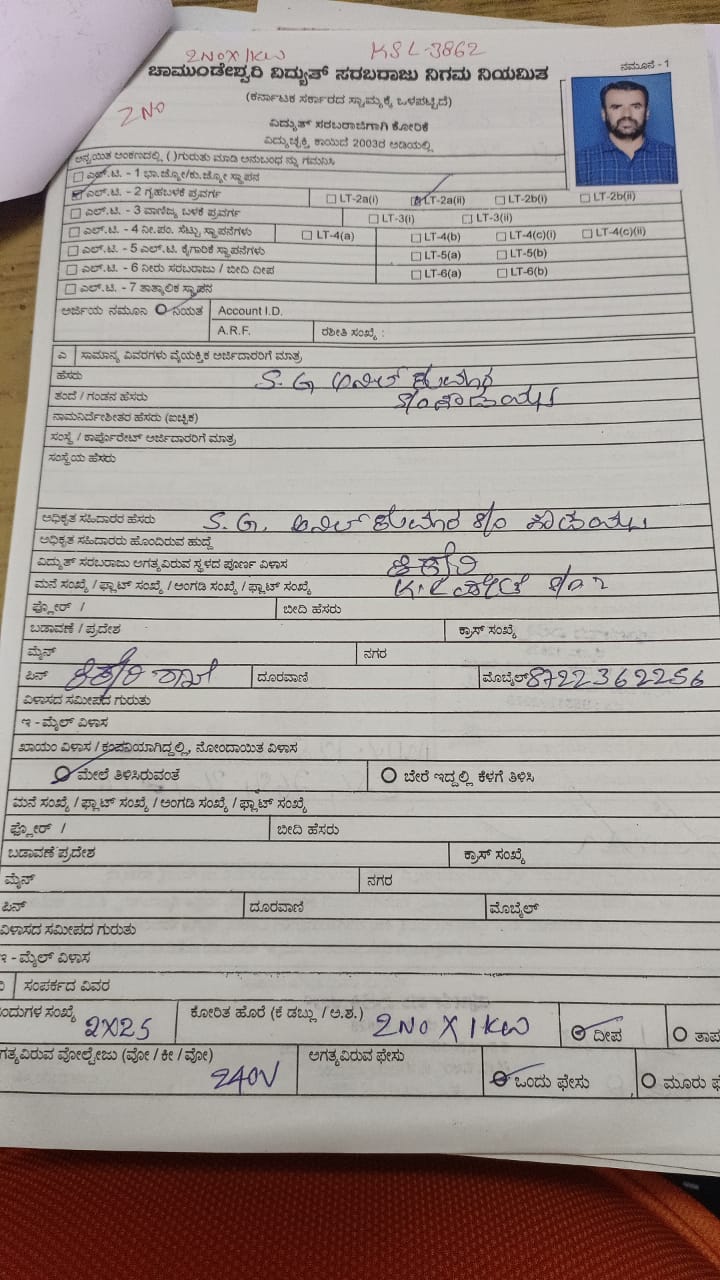 2NO X 1KW KSL-3862
ಚಾಮುಂಡೇಶ್ವರಿ ವಿದ್ಯುತ್ ಸರಬರಾಜು ನಿಗಮ ನಿಯಮಿತ
ನಮೂನೆ - 1
2 NO
(ಕರ್ನಾಟಕ ಸರ್ಕಾರದ ಸ್ವಾಮ್ಯಕ್ಕೆ ಒಳಪಟ್ಟಿದೆ)
ವಿದ್ಯುತ್ ಸರಬರಾಜಿಗಾಗಿ ಕೋರಿಕೆ
ವಿದ್ಯುಚ್ಛಕ್ತಿ ಕಾಯಿದೆ 2003ರ ಅಡಿಯಲ್ಲಿ
ಅನ್ವಯಿತ ಅಂಕಣದಲ್ಲಿ, ( )ಗುರುತು ಮಾಡಿ ಅನುಬಂಧ ನ್ನು ಗಮನಿಸಿ
ಎಲ್.ಟಿ. - 1 ಭಾ.ಜ್ಯೋ/ಕು.ಜ್ಯೋ ಸ್ಥಾಪನ
ಎಲ್.ಟಿ. - 2 ಗೃಹಬಳಕೆ ಪ್ರವರ್ಗ LT-2a(i) LT-2a(ii) LT-2b(i) LT-2b(ii)
ಎಲ್.ಟಿ. - 3 ವಾಣಿಜ್ಯ ಬಳಕೆ ಪ್ರವರ್ಗ LT-3(i) LT-3(ii)
ಎಲ್.ಟಿ. - 4 ನೀ.ಪಂ. ಸೆಟ್ಟು ಸ್ಥಾಪನೆಗಳು LT-4(a) LT-4(b) LT-4(c)(i) LT-4(c)(ii)
ಎಲ್.ಟಿ. - 5 ಎಲ್.ಟಿ. ಕೈಗಾರಿಕೆ ಸ್ಥಾಪನೆಗಳು LT-5(a) LT-5(b)
ಎಲ್.ಟಿ. - 6 ನೀರು ಸರಬರಾಜು / ಬೀದಿ ದೀಪ LT-6(a) LT-6(b)
ಎಲ್.ಟಿ. - 7 ತಾತ್ಕಾಲಿಕ ಸ್ಥಾಪನ
ಅರ್ಜಿಯ ನಮೂನಿ ನಿಯತ Account I.D.
A.R.F. ರಶೀತಿ ಸಂಖ್ಯೆ :
ಎ ಸಾಮಾನ್ಯ ವಿವರಗಳು ವೈಯಕ್ತಿಕ ಅರ್ಜಿದಾರರಿಗೆ ಮಾತ್ರ
ಹೆಸರು S. G ಅನಿಲ್ ಕುಮಾರ
ತಂದೆ / ಗಂಡನ ಹೆಸರು
ನಾಮನಿರ್ದೇಶಿತರ ಹೆಸರು (ಐಚ್ಛಿಕ)
ಸಂಸ್ಥೆ / ಕಾರ್ಪೊರೇಟ್ ಅರ್ಜಿದಾರರಿಗೆ ಮಾತ್ರ
ಸಂಸ್ಥೆಯ ಹೆಸರು
ಅಧಿಕೃತ ಸಹಿದಾರರ ಹೆಸರು S. G. ಅನಿಲ್ ಕುಮಾರ
ಅಧಿಕೃತ ಸಹಿದಾರರು ಹೊಂದಿರುವ ಹುದ್ದೆ
ವಿದ್ಯುತ್ ಸರಬರಾಜು ಅಗತ್ಯವಿರುವ ಸ್ಥಳದ ಪೂರ್ಣ ವಿಳಾಸ ಕಿಕ್ಕೇರಿ
ಮನೆ ಸಂಖ್ಯೆ / ಫ್ಲಾಟ್ ಸಂಖ್ಯೆ / ಅಂಗಡಿ ಸಂಖ್ಯೆ / ಫ್ಲಾಟ್ ಸಂಖ್ಯೆ
ಫ್ಲೋರ್ / ಬೀದಿ ಹೆಸರು
ಬಡಾವಣೆ / ಪ್ರದೇಶ ಕ್ರಾಸ್ ಸಂಖ್ಯೆ
ಮೈನ್ ನಗರ
ಪಿನ್ ಕಿಕ್ಕೇರಿ ದೂರವಾಣಿ ಮೊಬೈಲ್ 8722362256
ವಿಳಾಸದ ಸಮೀಪದ ಗುರುತು
ಇ - ಮೈಲ್ ವಿಳಾಸ
ಖಾಯಂ ವಿಳಾಸ / ಕಂಪನಿಯಾಗಿದ್ದಲ್ಲಿ, ನೋಂದಾಯಿತ ವಿಳಾಸ
ಮೇಲೆ ತಿಳಿಸಿರುವಂತೆ ಬೇರೆ ಇದ್ದಲ್ಲಿ ಕೆಳಗೆ ತಿಳಿಸಿ
ಮನೆ ಸಂಖ್ಯೆ / ಫ್ಲಾಟ್ ಸಂಖ್ಯೆ / ಅಂಗಡಿ ಸಂಖ್ಯೆ / ಫ್ಲಾಟ್ ಸಂಖ್ಯೆ
ಫ್ಲೋರ್ / ಬೀದಿ ಹೆಸರು
ಬಡಾವಣೆ ಪ್ರದೇಶ ಕ್ರಾಸ್ ಸಂಖ್ಯೆ
ಮೈನ್ ನಗರ
ಪಿನ್ ದೂರವಾಣಿ ಮೊಬೈಲ್
ವಿಳಾಸದ ಸಮೀಪದ ಗುರುತು
ಇ - ಮೈಲ್ ವಿಳಾಸ
ಸಂಪರ್ಕದ ವಿವರ
ಂದುಗಳ ಸಂಖ್ಯೆ 2X25 ಕೋರಿತ ಹೊರೆ (ಕೆ ಡಬ್ಲು / ಅ.ಶ.) 2NO X 1KW ದೀಪ ತಾಪ
ಗತ್ಯವಿರುವ ವೋಲ್ಟೇಜು (ವೋ / ಕೀ / ವೋ) 240V ಅಗತ್ಯವಿರುವ ಫೇಸು ಒಂದು ಫೇಸು ಮೂರು ಫೆ